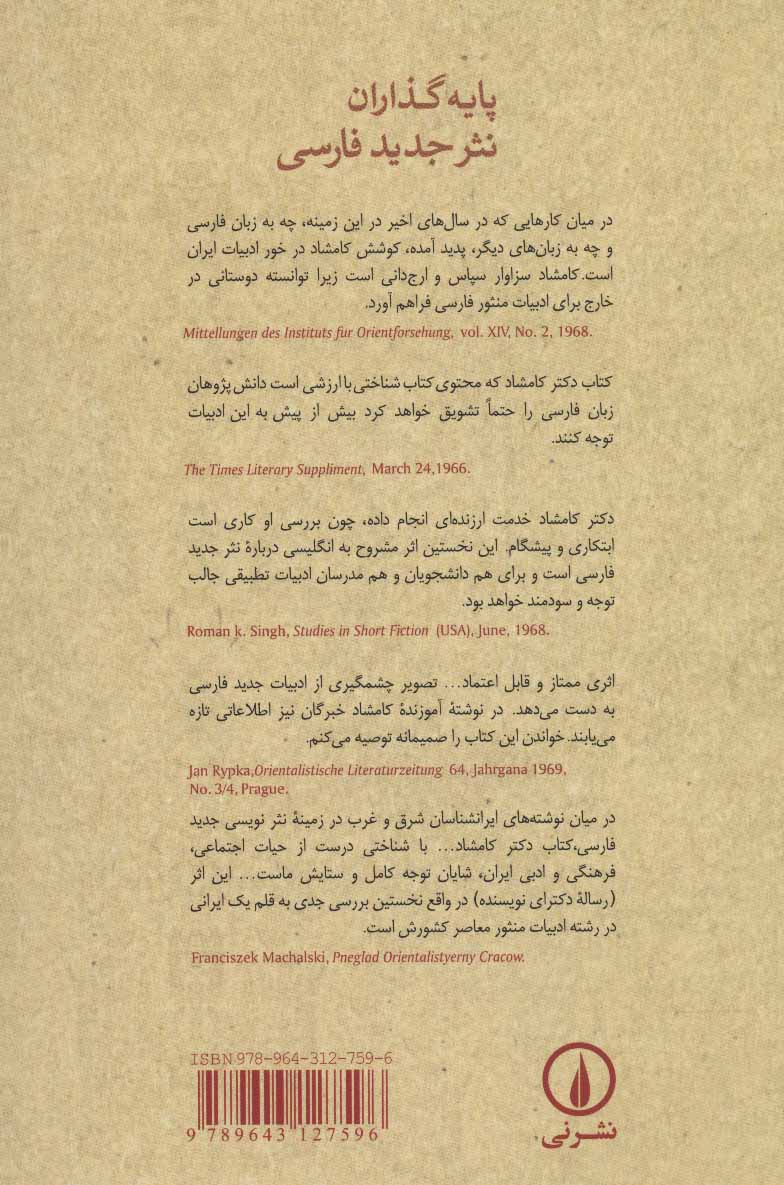 پایه‌گذاران
نثر جدید فارسی
در میان کارهایی که در سال‌های اخیر در این زمینه، چه به زبان فارسی
و چه به زبان‌های دیگر، پدید آمده، کوشش کامشاد در خور ادبیات ایران
است. کامشاد سزاوار سپاس و ارج‌دانی است زیرا توانسته دوستانی در
خارج برای ادبیات منثور فارسی فراهم آورد.
Mittellungen des Instituts fur Orientforsehung, vol. XIV, No. 2, 1968.
کتاب دکتر کامشاد که محتوی کتاب شناختی با ارزشی است دانش پژوهان
زبان فارسی را حتماً تشویق خواهد کرد بیش از پیش به این ادبیات
توجه کنند.
The Times Literary Suppliment, March 24,1966.
دکتر کامشاد خدمت ارزنده‌ای انجام داده، چون بررسی او کاری است
ابتکاری و پیشگام. این نخستین اثر مشروح به انگلیسی دربارهٔ نثر جدید
فارسی است و برای هم دانشجویان و هم مدرسان ادبیات تطبیقی جالب
توجه و سودمند خواهد بود.
Roman k. Singh, Studies in Short Fiction (USA), June, 1968.
اثری ممتاز و قابل اعتماد... تصویر چشمگیری از ادبیات جدید فارسی
به دست می‌دهد. در نوشتهٔ آموزندهٔ کامشاد خبرگان نیز اطلاعاتی تازه
می‌یابند. خواندن این کتاب را صمیمانه توصیه می‌کنم.
Jan Rypka,Orientalistische Literaturzeitung 64, Jahrgana 1969,
No. 3/4, Prague.
در میان نوشته‌های ایرانشناسان شرق و غرب در زمینهٔ نثر نویسی جدید
فارسی،کتاب دکتر کامشاد... با شناختی درست از حیات اجتماعی،
فرهنگی و ادبی ایران، شایان توجه کامل و ستایش ماست... این اثر
(رسالهٔ دکترای نویسنده) در واقع نخستین بررسی جدی به قلم یک ایرانی
در رشته ادبیات منثور معاصر کشورش است.
Franciszek Machalski, Pneglad Orientalistyerny Cracow.
ISBN 978-964-312-759-6
9 789643 127596
نشرنی